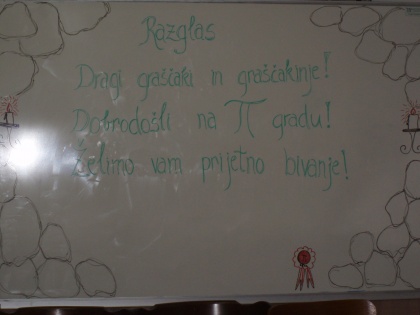 Razglas
Dragi graščaki in graščakinje!
Dobrodošli na π gradu!
Želimo vam prijetno bivanje!